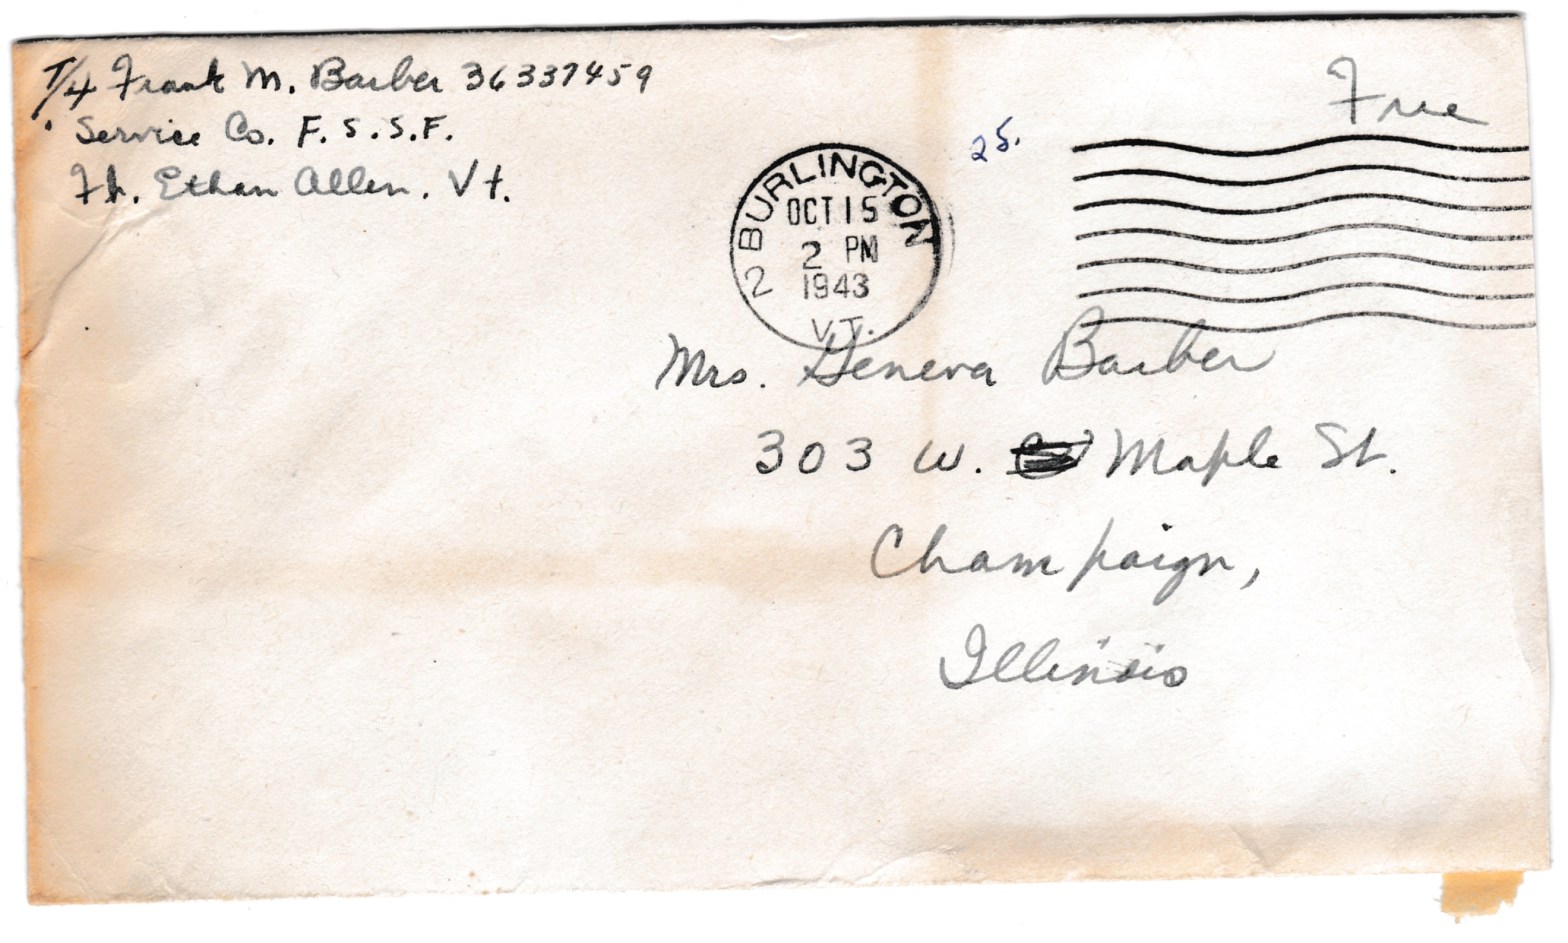 T/4 Frank M. Barber 36337459
Service Co. F.S.S.F.
Ft. Ethan Allen, Vt.
Free
25.
BURLINGTON 2
OCT 15
2 PM
1943
VT.
Mrs. Geneva Barber
303 W. Maple St.
Champaign,
Illinois